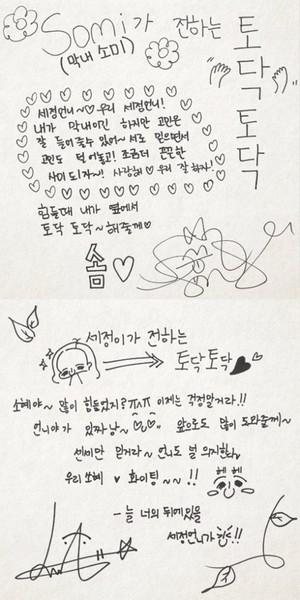 Somi가 전하는
(막내 소미)
토닥토닥
세정언니~♡ 우리 세정언니!
내가 막내이긴 하지만 고민은
잘 들어줄수 있어~ 서로 믿으면서
고민도 털어놓고! 조금더 끈끈한
사이 되자~! 사랑해♡ 우리 잘 하자!
힘들때 내가 옆에서
토닥 토닥~ 해줄게♡
쏨♡
세정이가 전하는
토닥토닥
소혜야~ 많이 힘들었지? ㅠㅠ 이제는 걱정말거라!!
언니야가 있짜낭~ 앞으로도 많이 도와줄게~
센비만 믿거라~ 언니도 널 의지한다
우리 쏘혜 ♥ 화이팅~~!!
헤헤
- 늘 너의 뒤에 있을
세정언니가